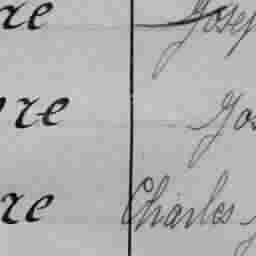 re Josep
re Jos
re Charles